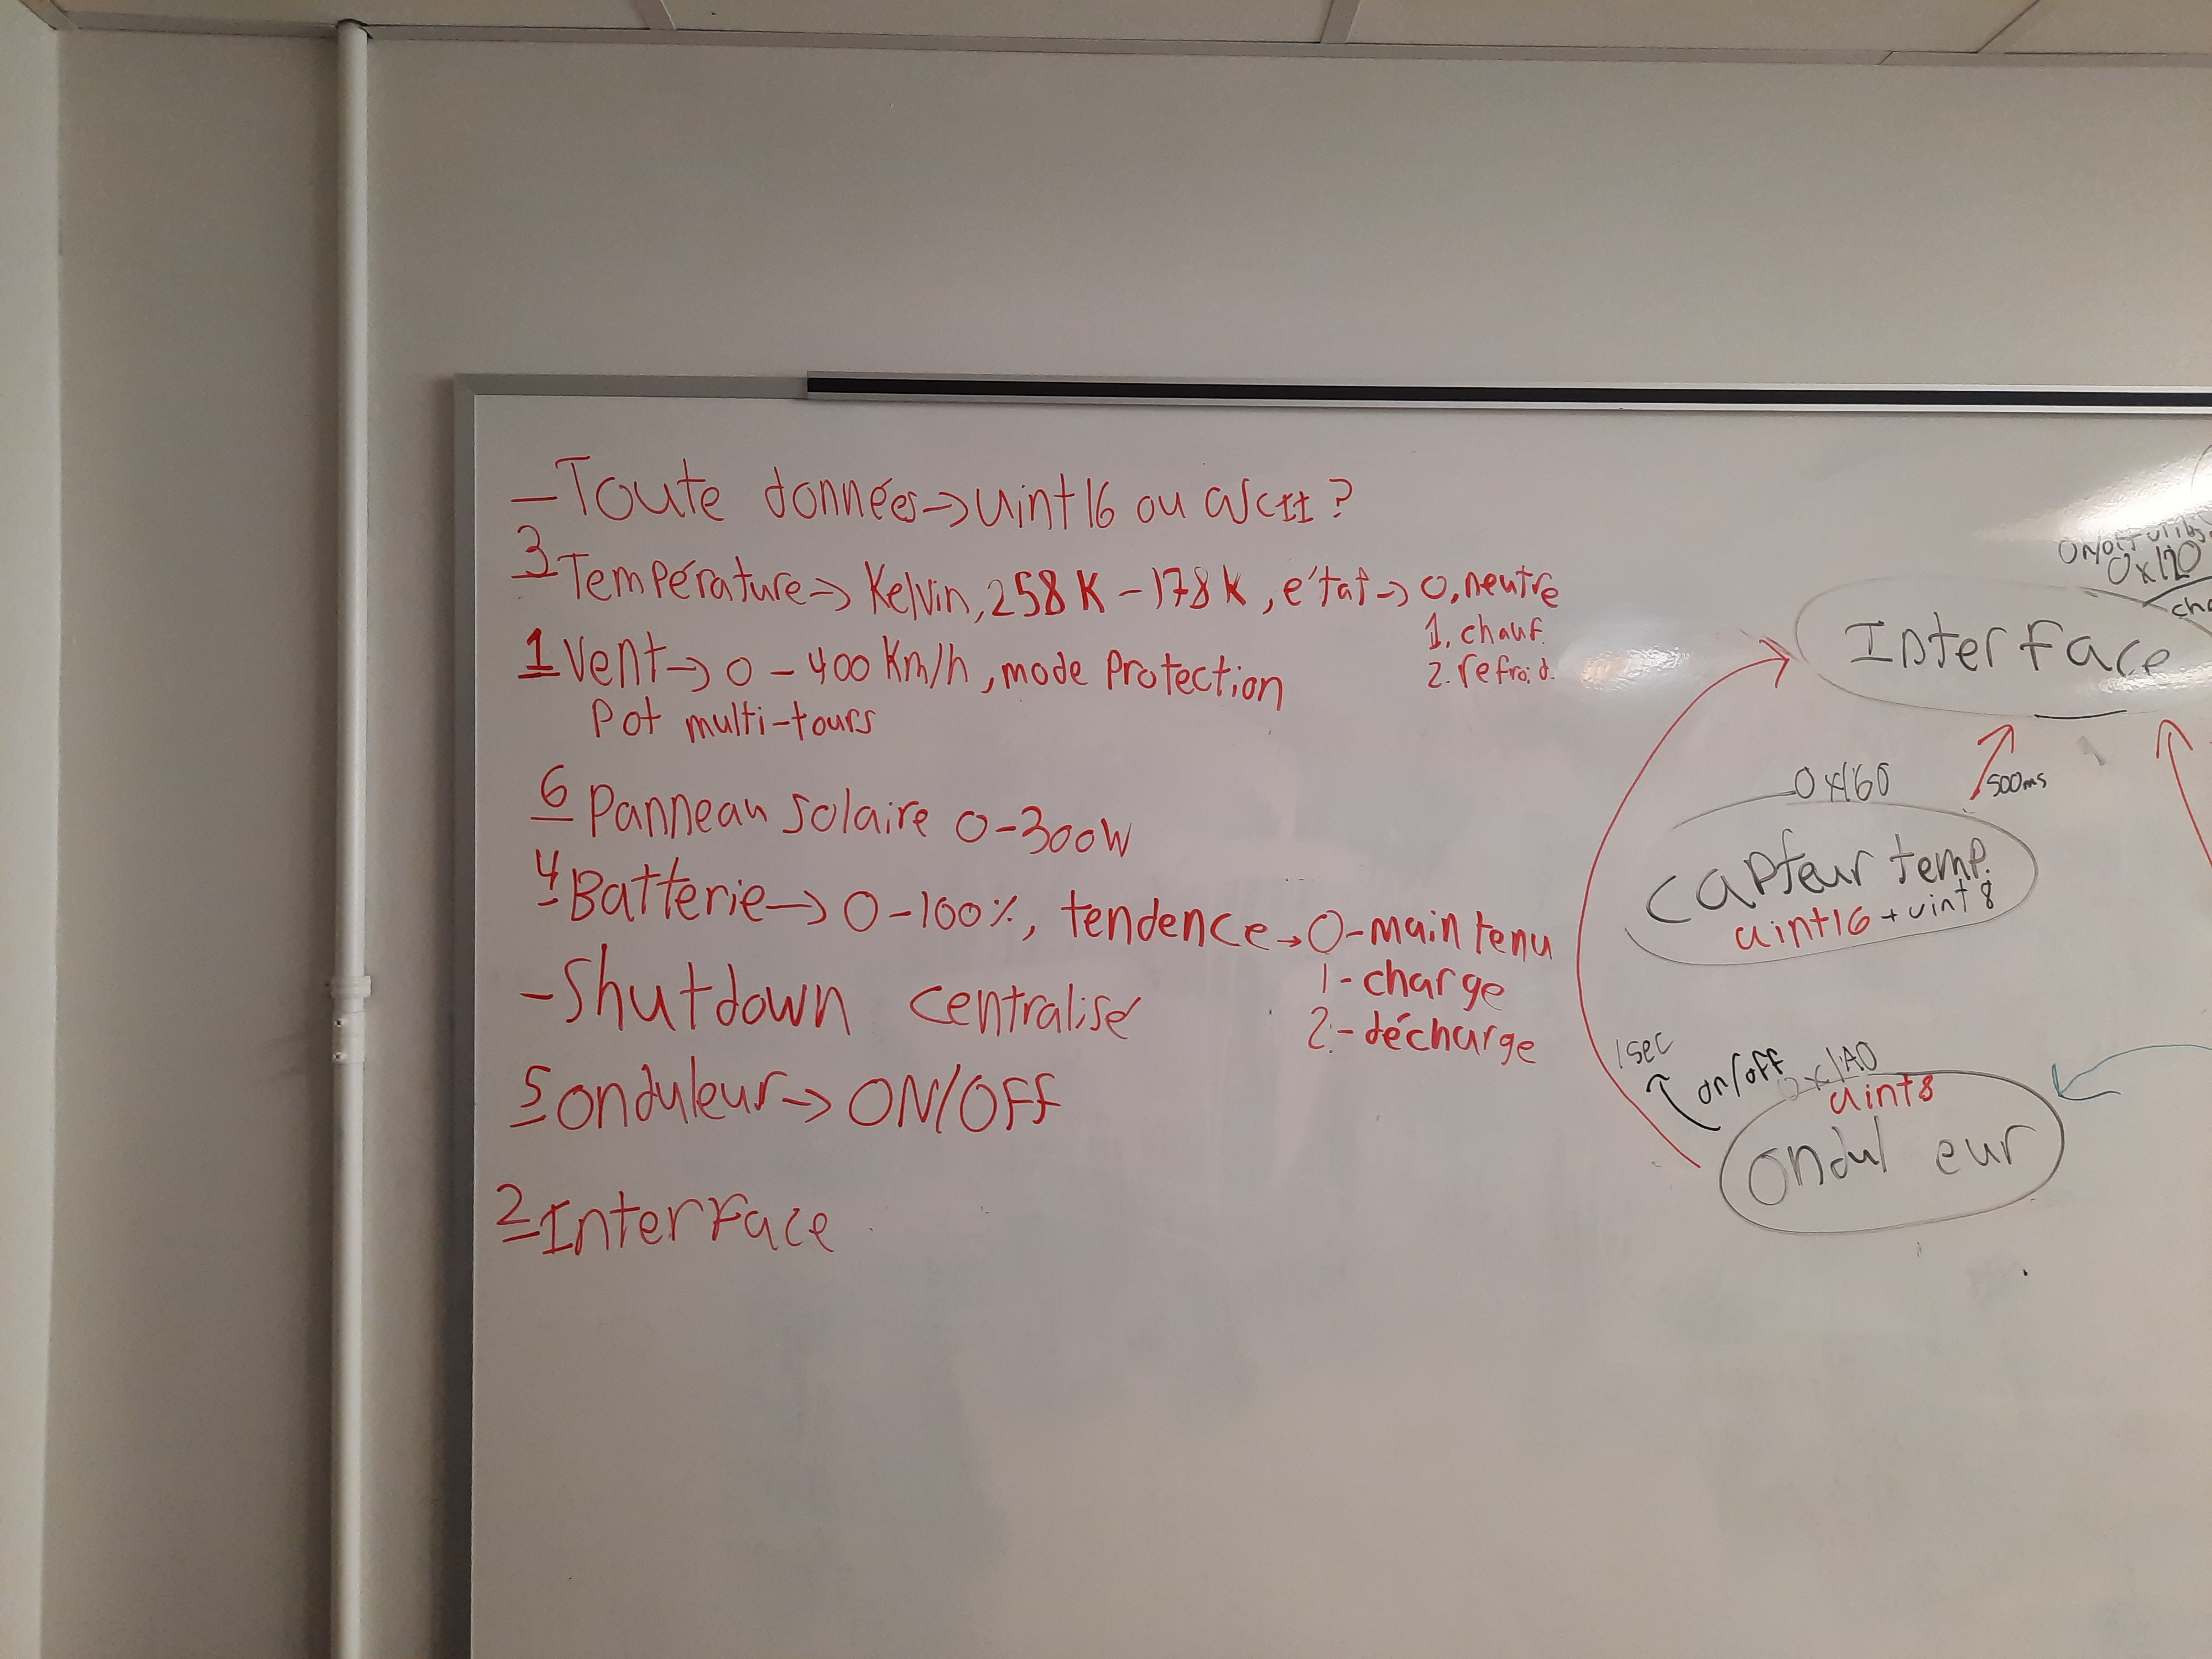 - Toute données -> uint16 ou ascII ?
3 Température -> Kelvin, 258K - 178K, état -> 0, neutre
1. chauf.
2. refroid.
1 Vent -> 0 - 400 Km/h, mode Protection
Pot multi-tours
6 Panneau solaire 0-300W
4 Batterie -> 0-100%, tendence -> 0-maintenu
1- charge
2.- décharge
- Shutdown centralisé
5 onduleur -> ON/OFF
2 Interface
on/off
0x120
Interface
0x160
500ms
capteur temp.
uint16 + uint8
1sec
on/off 0x1A0
uint8
onduleur